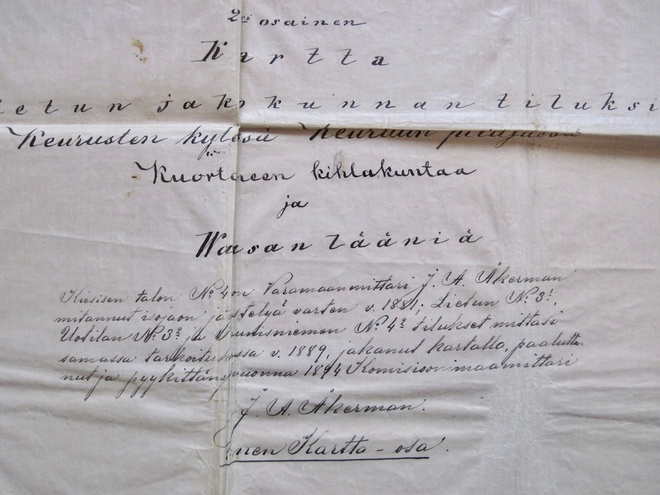 2:si osainen
Kartta
jakokunnan tiluksi
Keurusten kylässä Keuruun pitäjässä
Kuortaneen kihlakuntaa
ja
Waasan lääniä
No 4 on Varamaanmittari J. A. Åkerman
mitannut isojaon järjestelyä varten v. 1881; Lietun No 3,
Uotilan No 3 ja No 4 tilukset mittasi
samassa tarkoituksessa v. 1889, jakanut kartalla, paalutta-
nut ja pyykittänyt vuonna 1894 Komisionimaamittari
J. A. Åkerman.
nen Kartta-osa.